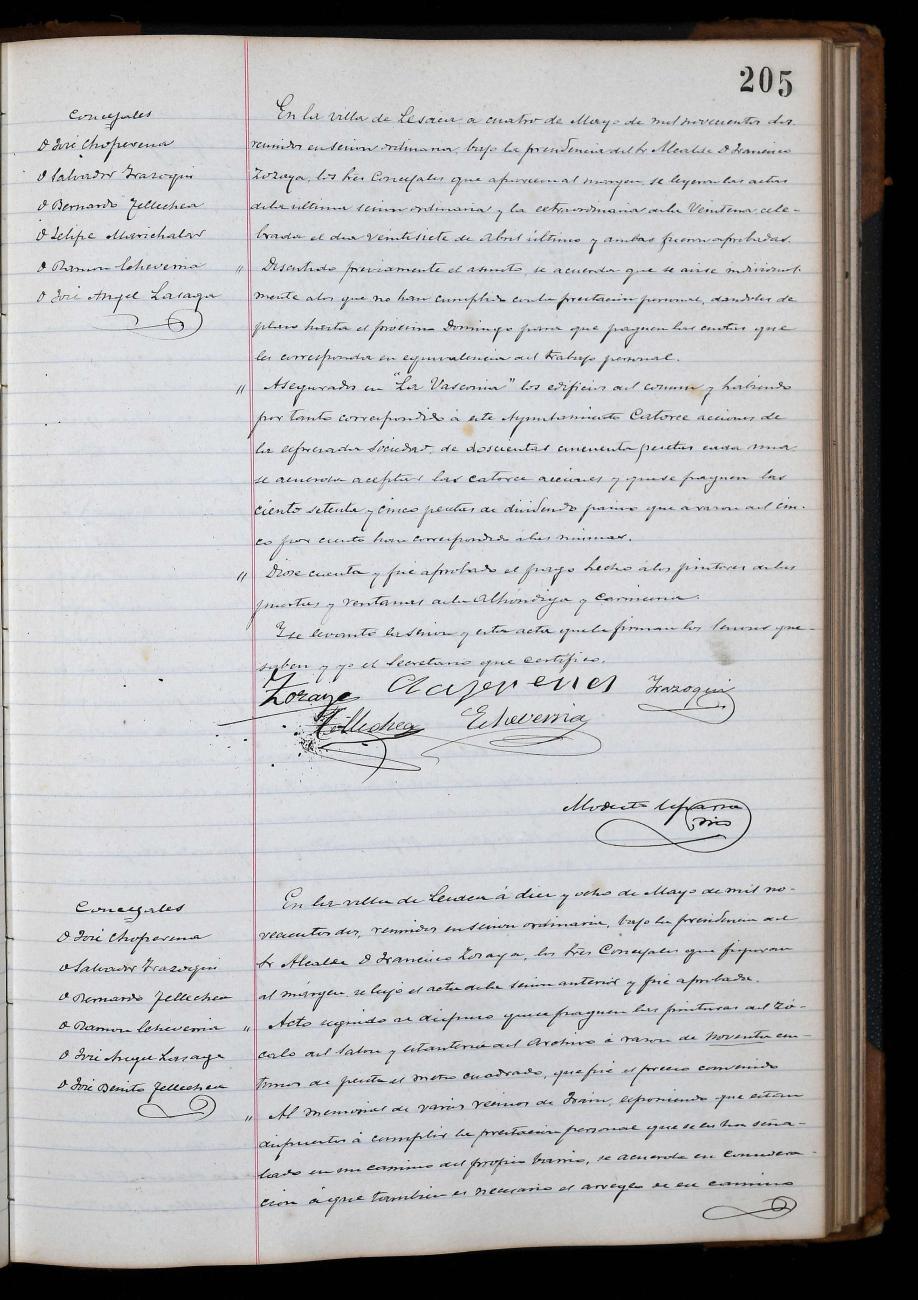 205
Concejales
D José Choperena
D Salvador Irazoqui
D Bernardo Tellechea
D Felipe Marichalar
D Ramon Echeverria
D José Angel Lasaga
En la villa de Lesaca a cuatro de Mayo de mil novecientos dos
reunidos en sesion ordinaria, bajo la presidencia del Sr Alcalde D Francisco
Zoraya, los Sres Concejales que aparecen al margen, se leyeron las actas
de la ultima sesion ordinaria y la extraordinaria de la Veintena cele-
brada el dia veintisiete de Abril último y ambas fueron aprobadas.
" Discutido previamente el asunto, se acuerda que se avise individual-
mente a los que no han cumplido con la prestacion personal, dandoles de
plazo hasta el próximo Domingo para que paguen las cuotas que
les corresponda en equivalencia del trabajo personal.
" Asegurados en "La Vasconia" los edificios del comun y habiendo
por tanto correspondido á este Ayuntamiento Catorce acciones de
la espresada Sociedad, de doscientas cincuenta pesetas cada una
se acuerda aceptar las catorce acciones y que se paguen las
ciento setenta y cinco pesetas de dividendo pasivo que a razon del cin-
co por ciento han correspondido a las mismas.
" Diose cuenta y fué aprobado el pago hecho á los pintores de las
puertas y ventanas de la Alhóndiga y Carniceria.
Y se levantó la sesion y esta acta que la firman los Señores que
saben y yo el Secretario que certifico.
Zoraya Choperena Irazoqui
Tellechea Echeverria
Modesto
Concejales
D José Choperena
D Salvador Irazoqui
D Bernardo Tellechea
D Ramon Echeverria
D José Angel Lasaga
D José Benito Tellechea
En la villa de Lesaca á diez y ocho de Mayo de mil no-
vecientos dos, reunidos en sesion ordinaria, bajo la presidencia del
Sr Alcalde D Francisco Zoraya, los Sres Concejales que figuran
al márgen, se leyó el acta de la sesion anterior y fué aprobada.
" Acto seguido se dispuso que se paguen las pinturas del Zó-
calo del Salon y estanteria del Archivo á razon de noventa cen-
timos de peseta el metro cuadrado, que fué el precio convenido
" Al memorial de varios vecinos de Frain, esponiendo que estan
dispuestos á cumplir la prestacion personal que se les ha seña-
lado en un camino del propio barrio, se acuerda en considera-
cion á que tambien es necesario el arreglo de ese camino